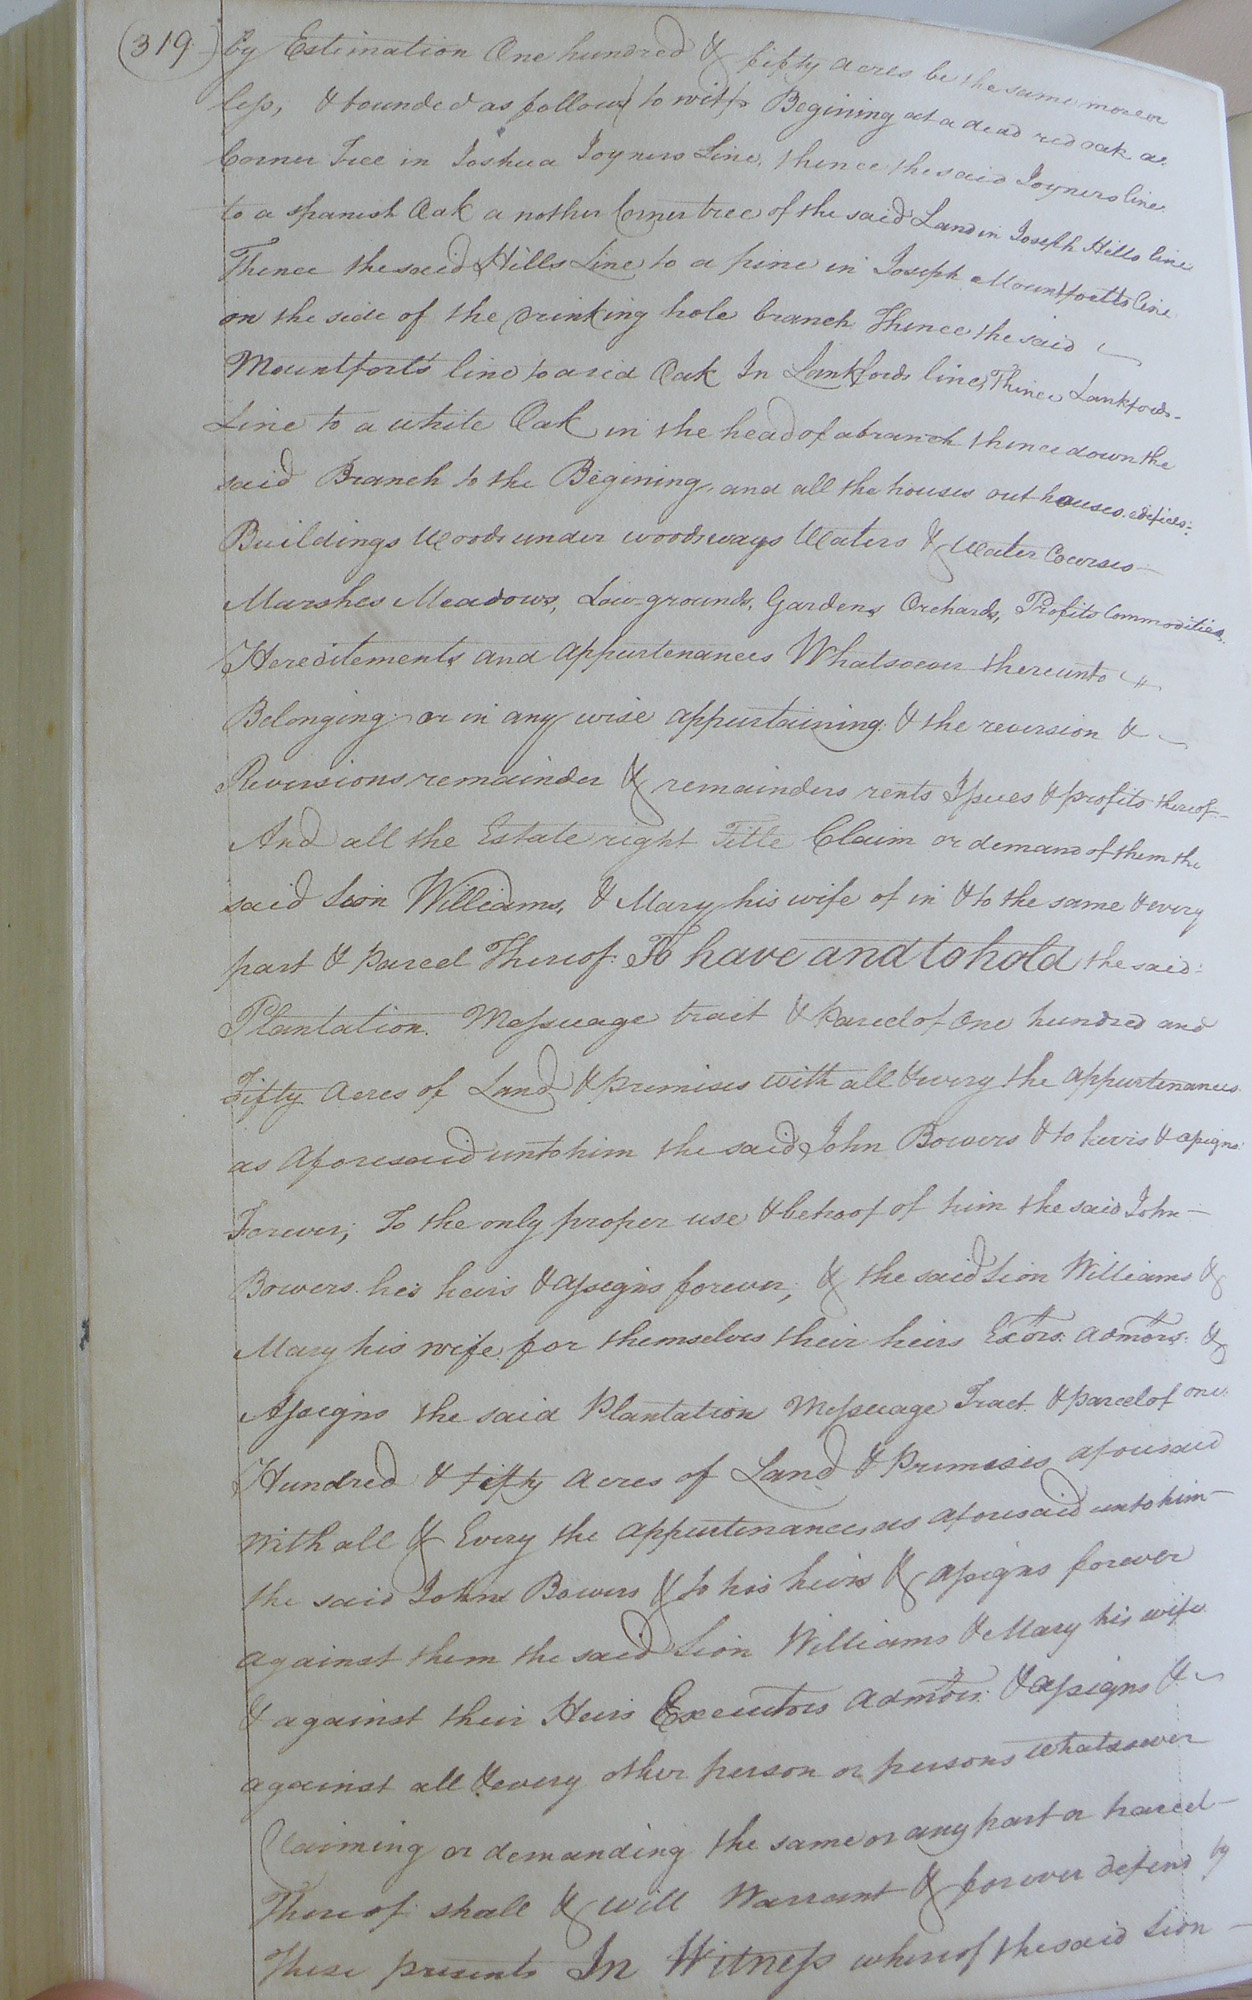 (319.) by Estimation One hundred & fifty acres be the same more or
less, & bounded as follows to wit, Begining at a dead red oak a
Corner Tree in Joshua Joyners Line, thence the said Joyners line
to a spanish Oak a nother Corner tree of the said Land in Joseph Hills line
Thence the said Hills Line to a pine in Joseph Mountfortts line
on the side of the Drinking hole branch Thence the said
Mountforts line to a red Oak In Lankfords line, Thence Lankfords
Line to a white Oak in the head of a branch thence down the
said Branch to the Begining, and all the houses out houses edifices:
Buildings Woods under woods ways Waters & Water Courses
Marshes Meadows, Low-grounds, Gardens, Orchards, Profits Commodities
Hereditements and appurtenances Whatsoever thereunto
Belonging or in any wise appurtaining & the reversion &
Reversions remainder & remainders rents Issues & profits thereof
And all the Estate right Title Claim or demand of them the
said Lion Williams, & Mary his wife of in & to the same & every
part & parcel Thereof: To have and to hold the said:
Plantation. Messuage tract & parcel of One hundred and
Fifty Acres of Land & premises with all & every the appurtenances
as Aforesaid unto him the said John Bowers & to heris & assigns
Forever; To the only proper use & behoof of him the said John
Bowers his heirs & assigns forever; & the said Lion Williams &
Mary his wife for themselves their heirs Exōrs. admōrs. &
Assigns the said Plantation Messuage Tract. & parcel of one
Hundred & fifty Acres of Land & Premises aforesaid
With all & Every the appurtenances as aforesaid unto him
the said John Bowers & to his heirs & assigns forever
against them the said Lion Williams & Mary his wife
& against their Heirs Executors admōrs. & assigns &
against all & every other person or persons whatsoever
Claiming or demanding the same or any part or parcel
Thereof shall & will Warrant & forever defend by
These presents In Witness whereof the said Lion